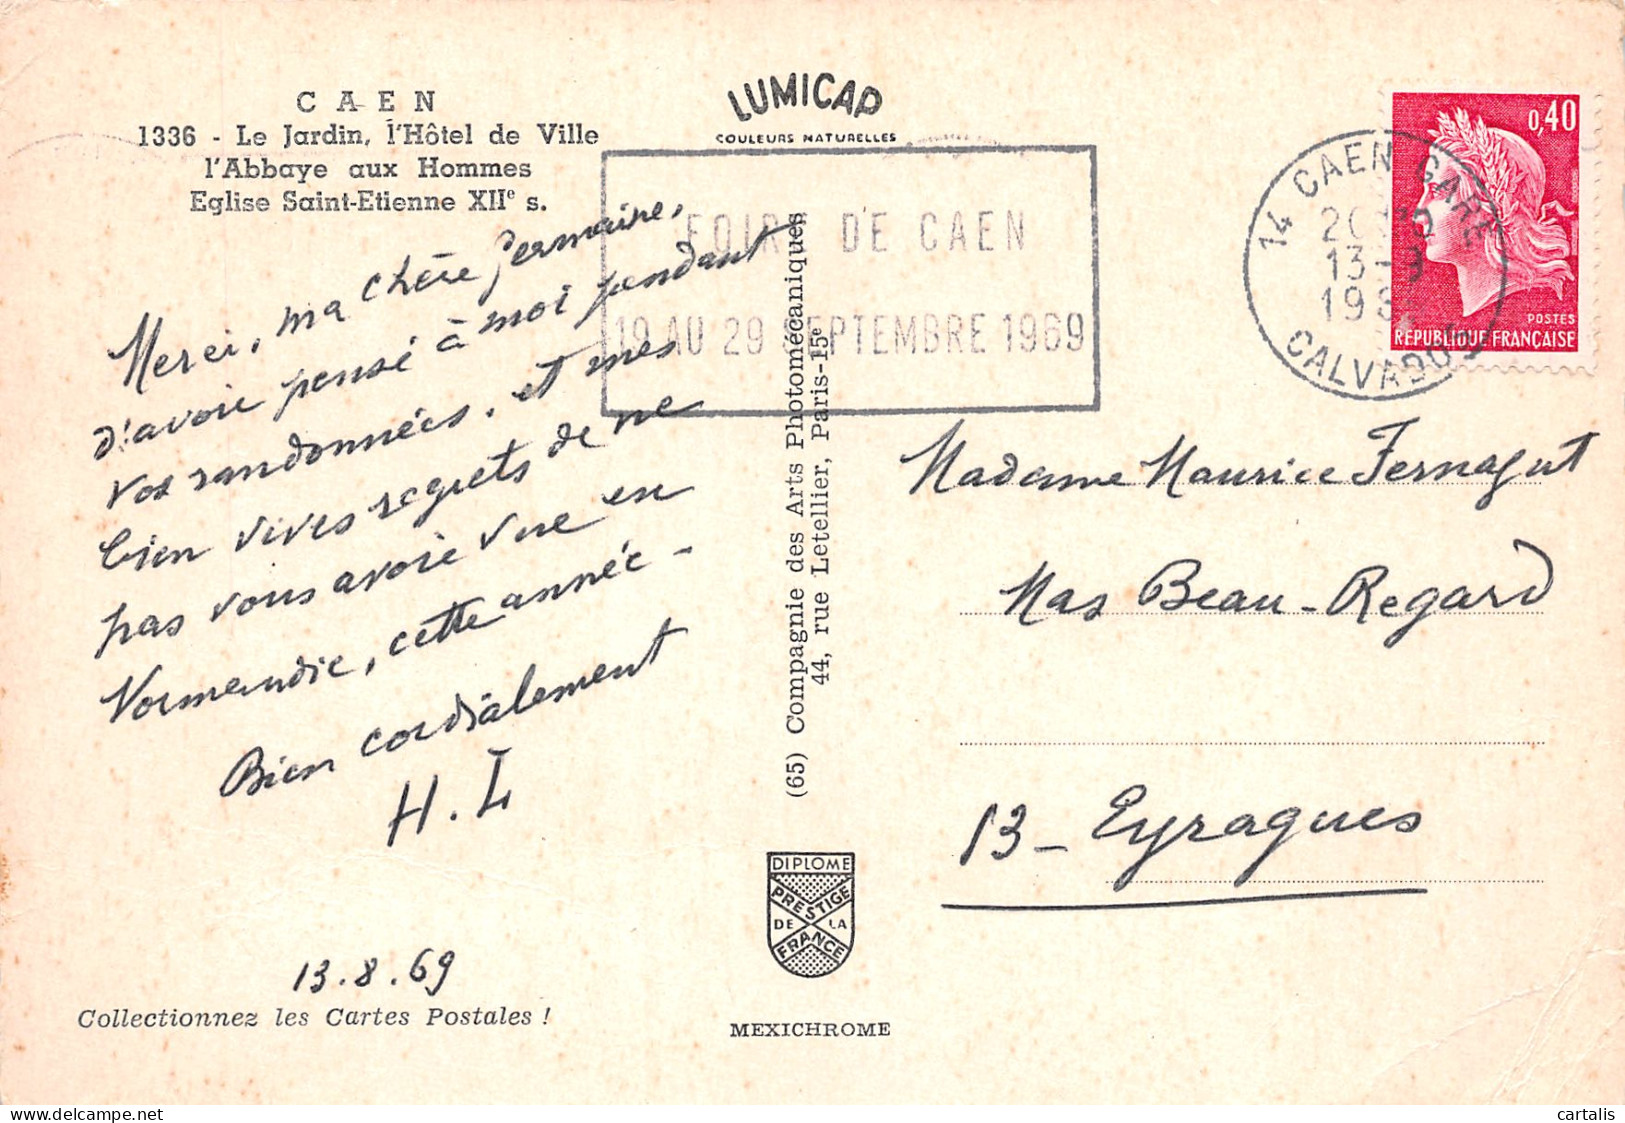 CAEN
1336 - Le Jardin, l'Hôtel de Ville
l'Abbaye aux Hommes
Eglise Saint-Etienne XIIe s.
LUMICAP
COULEURS NATURELLES
FOIRE DE CAEN
19 AU 29 SEPTEMBRE 1969
14 CAEN GARE
13-8
CALVADOS
0,40
POSTES
REPUBLIQUE FRANÇAISE
Merci, ma chère Germaine,
d'avoir pensé à moi pendant
vos randonnées. et mes
bien vives regrets de ne
pas vous avoir vue en
Normandie, cette année -
Bien cordialement
H. L
13.8.69
Collectionnez les Cartes Postales !
(65) Compagnie des Arts Photomécaniques
44, rue Letellier, Paris-15e
DIPLOME
PRESTIGE
DE LA
FRANCE
MEXICHROME
Madame Maurice Fernagut
Mas Beau-Regard
13 - Eyragues
cartalis